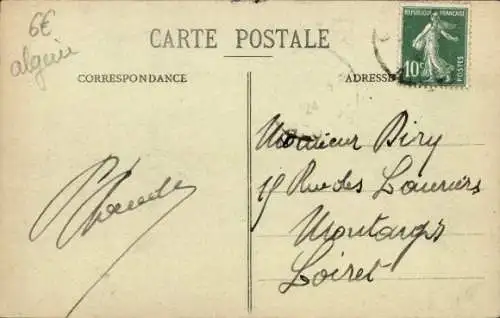 6€
algerie
CARTE POSTALE
CORRESPONDANCE
ADRESSE
REPUBLIQUE FRANÇAISE
10c
POSTES
Monsieur Biry
15 Rue des Lauriers
Montargis
Loiret